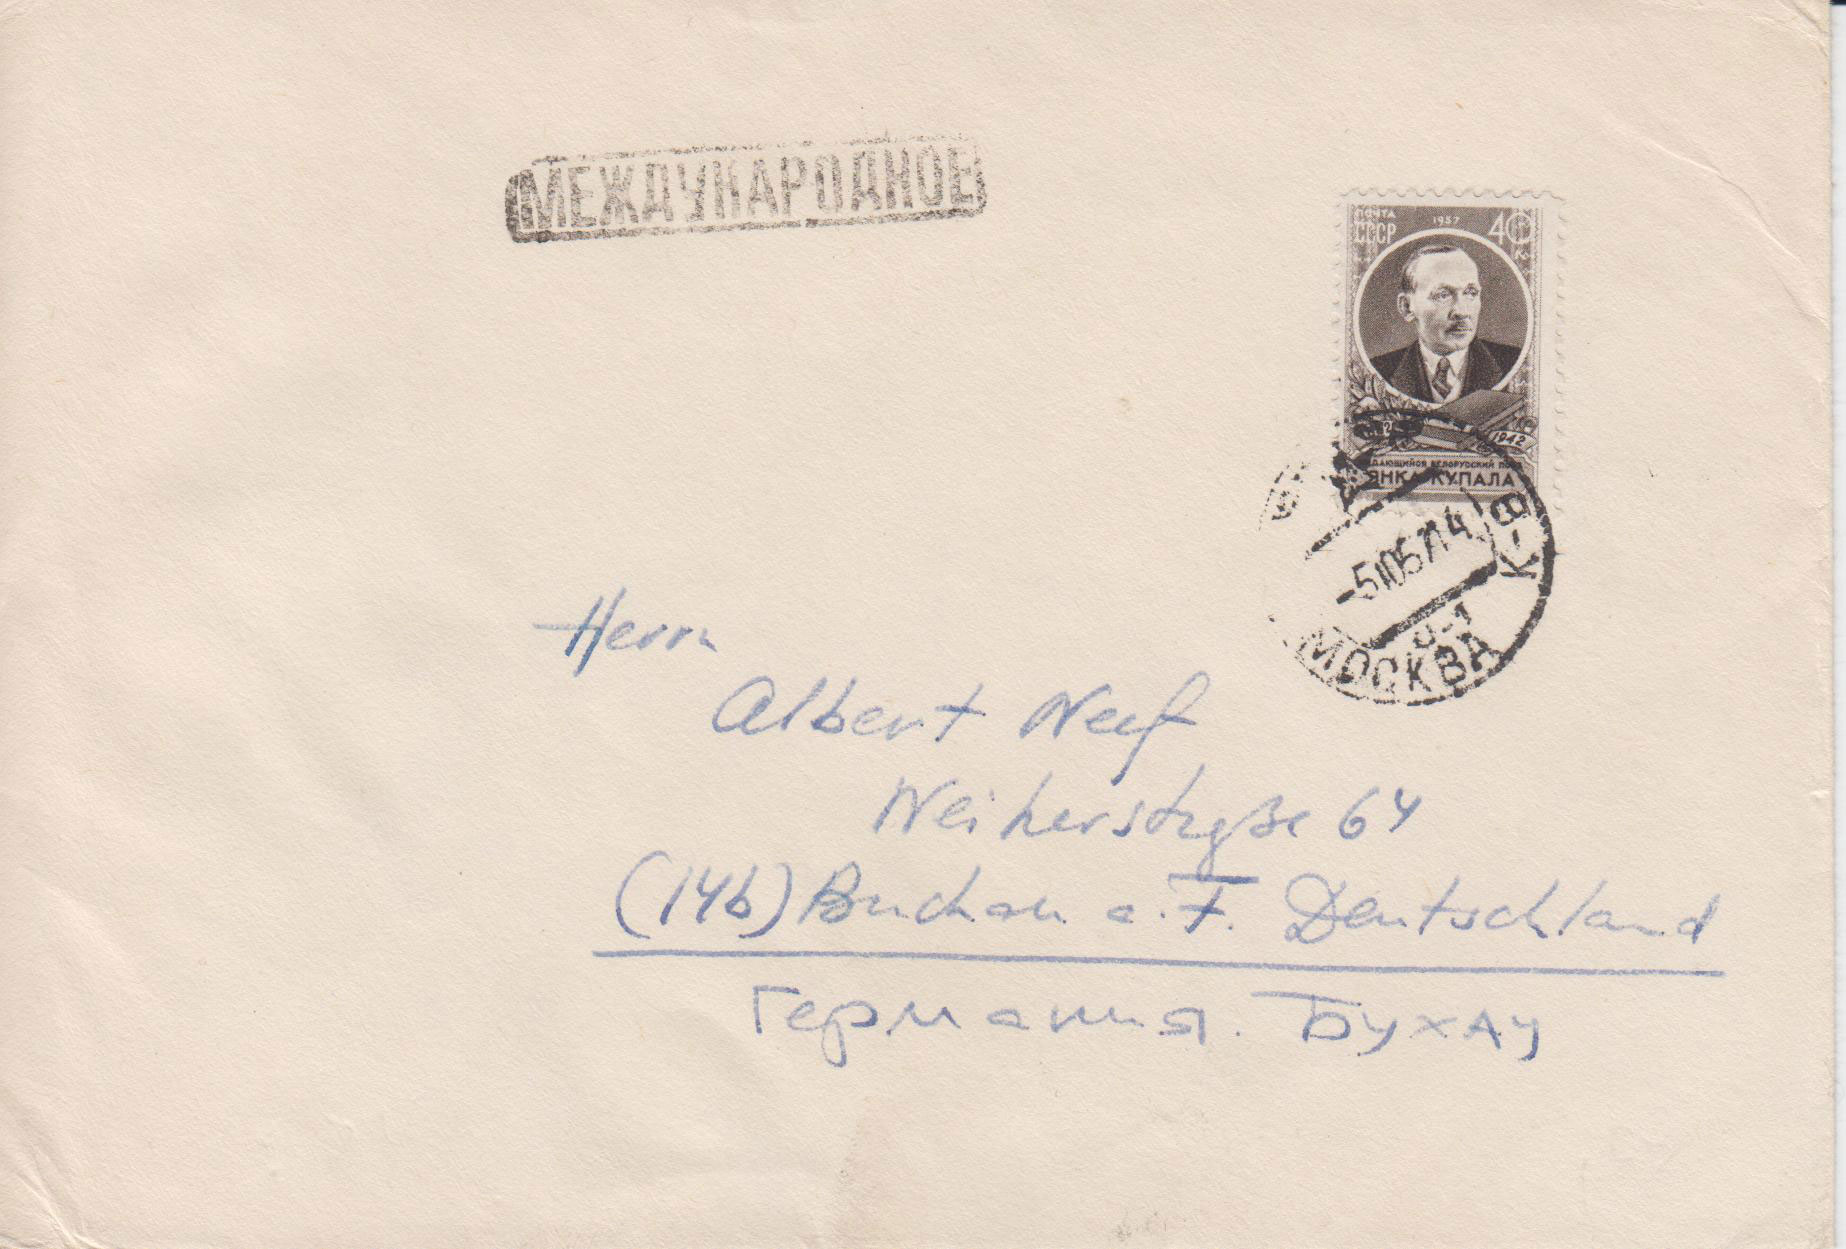 МЕЖДУНАРОДНОЕ
ПОЧТА 1957 40
СССР к.
1942
ВЫДАЮЩИЙСЯ БЕЛОРУССКИЙ ПОЭТ
ЯНКА КУПАЛА
-5105714
К-9
МОСКВА
Herrn
Albert Neef
Weiherstraße 64
(14b) Buchau a. F. Deutschland
Германия. Бухау